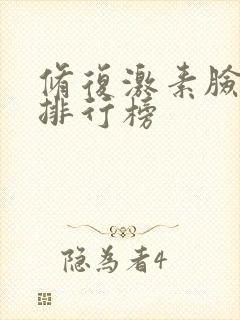 脩復激素臉
排行榜
隐為者4